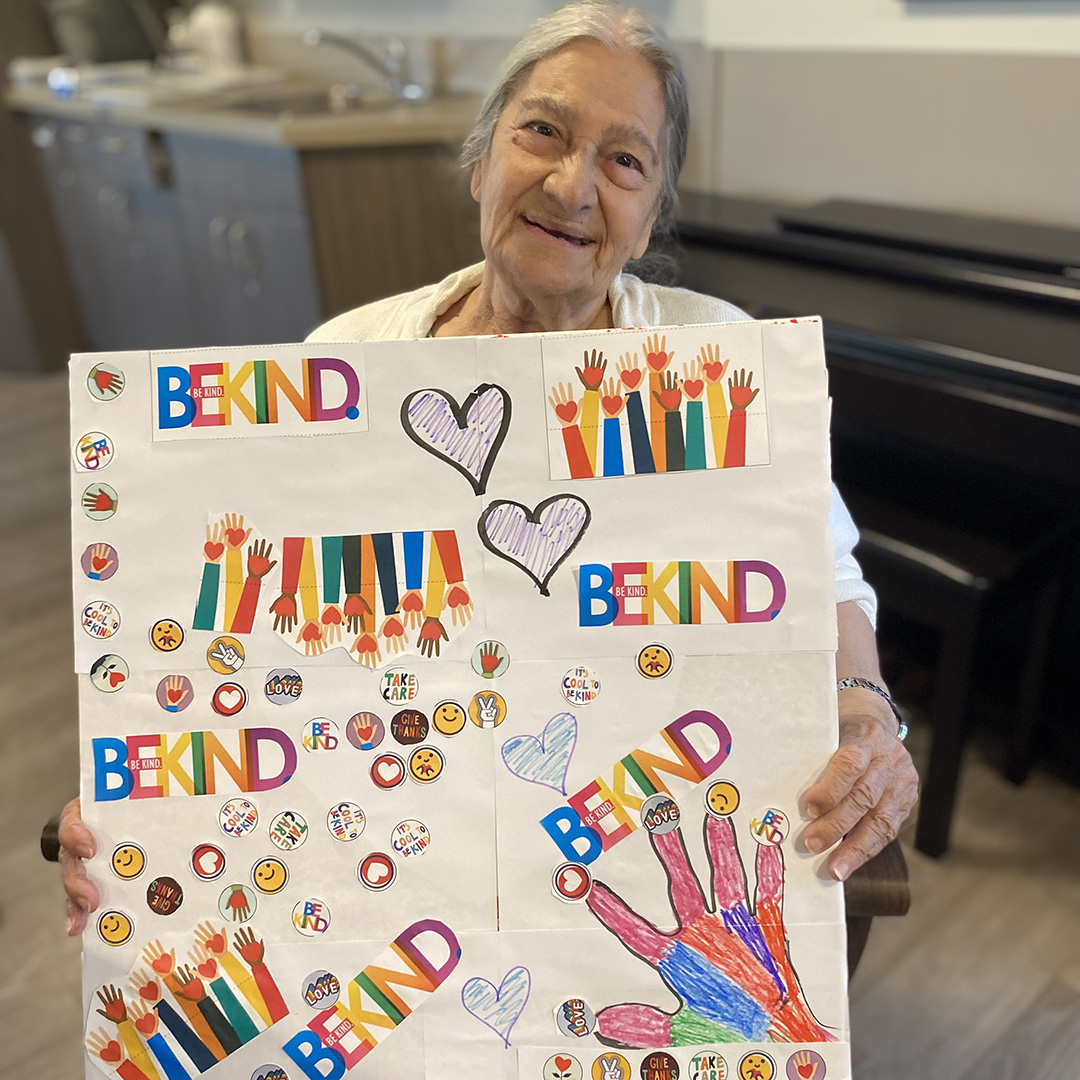 BEKIND.
BE KIND.
BE KIND
IT'S COOL TO BE KIND
BEKIND
BE KIND.
TAKE CARE
LOVE
IT'S COOL TO BE KIND
BE KIND
GIVE THANKS
BEKIND
BE KIND.
BEKIND
BE KIND.
LOVE
BE KIND
IT'S COOL TO BE KIND
TAKE CARE
IT'S COOL TO BE KIND
IT'S COOL TO BE KIND
GIVE THANKS
BE KIND
BEKIND
BE KIND.
LOVE
LOVE
GIVE THANKS
TAKE CARE